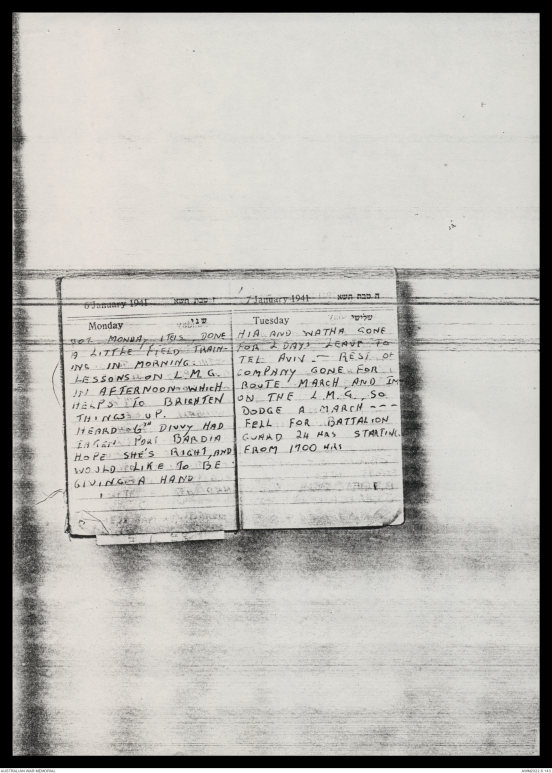 6 January 1941 ז טבת תשא
Monday שני
MONDAY ITIS, DONE
A LITTLE FIELD TRAIN-
ING IN MORNING.
LESSONS ON L.M.G.
IN AFTERNOON WHICH
HELPS TO BRIGHTEN
THINGS UP.
HEARD 6TH DIVVY HAD
PORT BARDIA
HOPE SHE'S RIGHT, AND
WOULD LIKE TO BE
GIVING A HAND
7 January 1941 ח טבת תשא
Tuesday שלישי
HIA AND WATHA GONE
FOR 2 DAYS LEAVE TO
TEL AVIV. — REST OF
COMPANY GONE FOR
ROUTE MARCH AND IM
ON THE L.M.G, SO
DODGE A MARCH ---
FELL FOR BATTALION
GUARD 24 HRS STARTING
FROM 1700 HRS
AUSTRALIAN WAR MEMORIAL